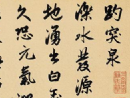 趵突泉
濼水發源
地湧出白
久恐元氣